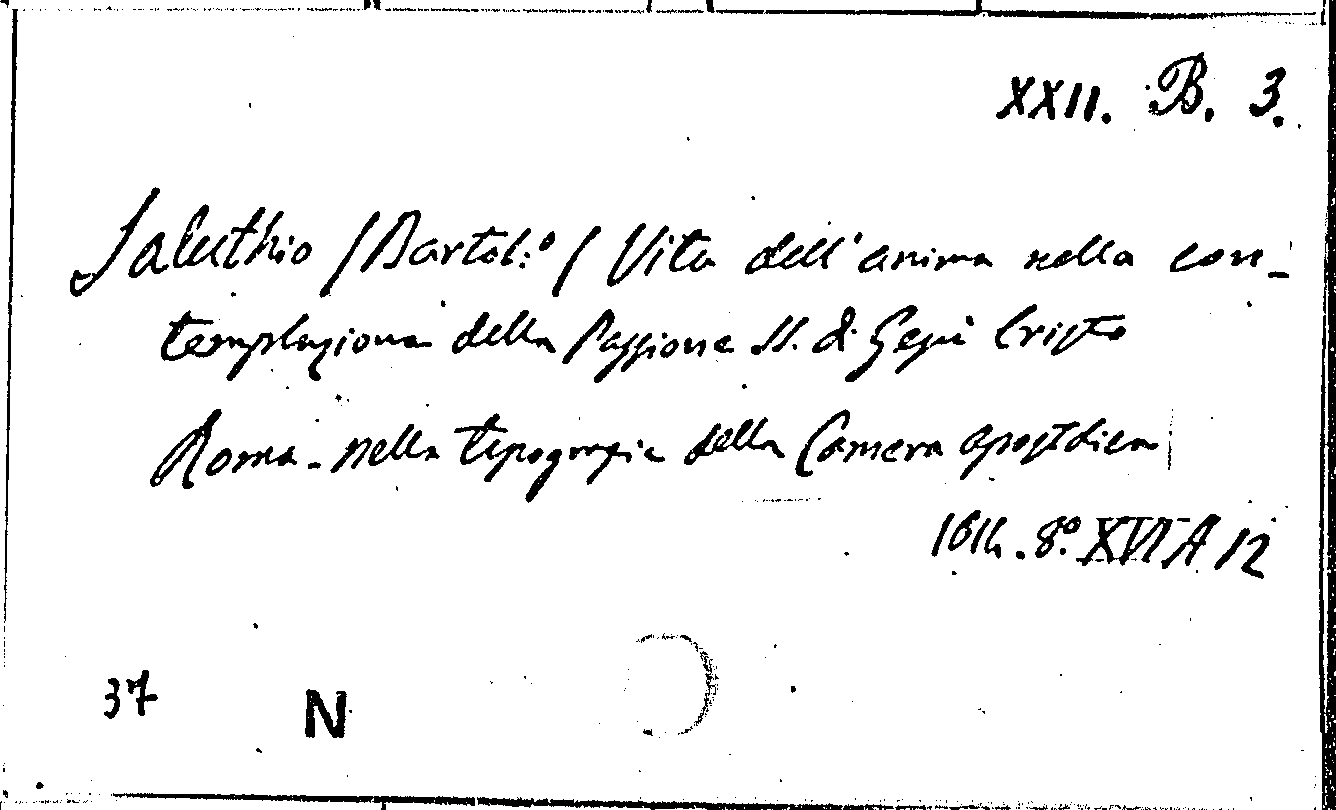 XXII. B. 3.
Saluthio /Bartol:º/ Vita dell'anima nella con-
templazione della Passione SS. di Gesù Cristo
Roma - nella tipografia della Camera apostolica
1614. 8º. XVI A 12
37 N